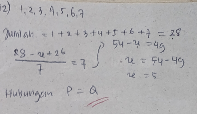 12) 1, 2, 3, 4, 5, 6, 7
Jumlah = 1 + 2 + 3 + 4 + 5 + 6 + 7 = 28
28 - x + 26 / 7 = 7
54 - x = 49
x = 54 - 49
x = 5
Hubungan P = Q